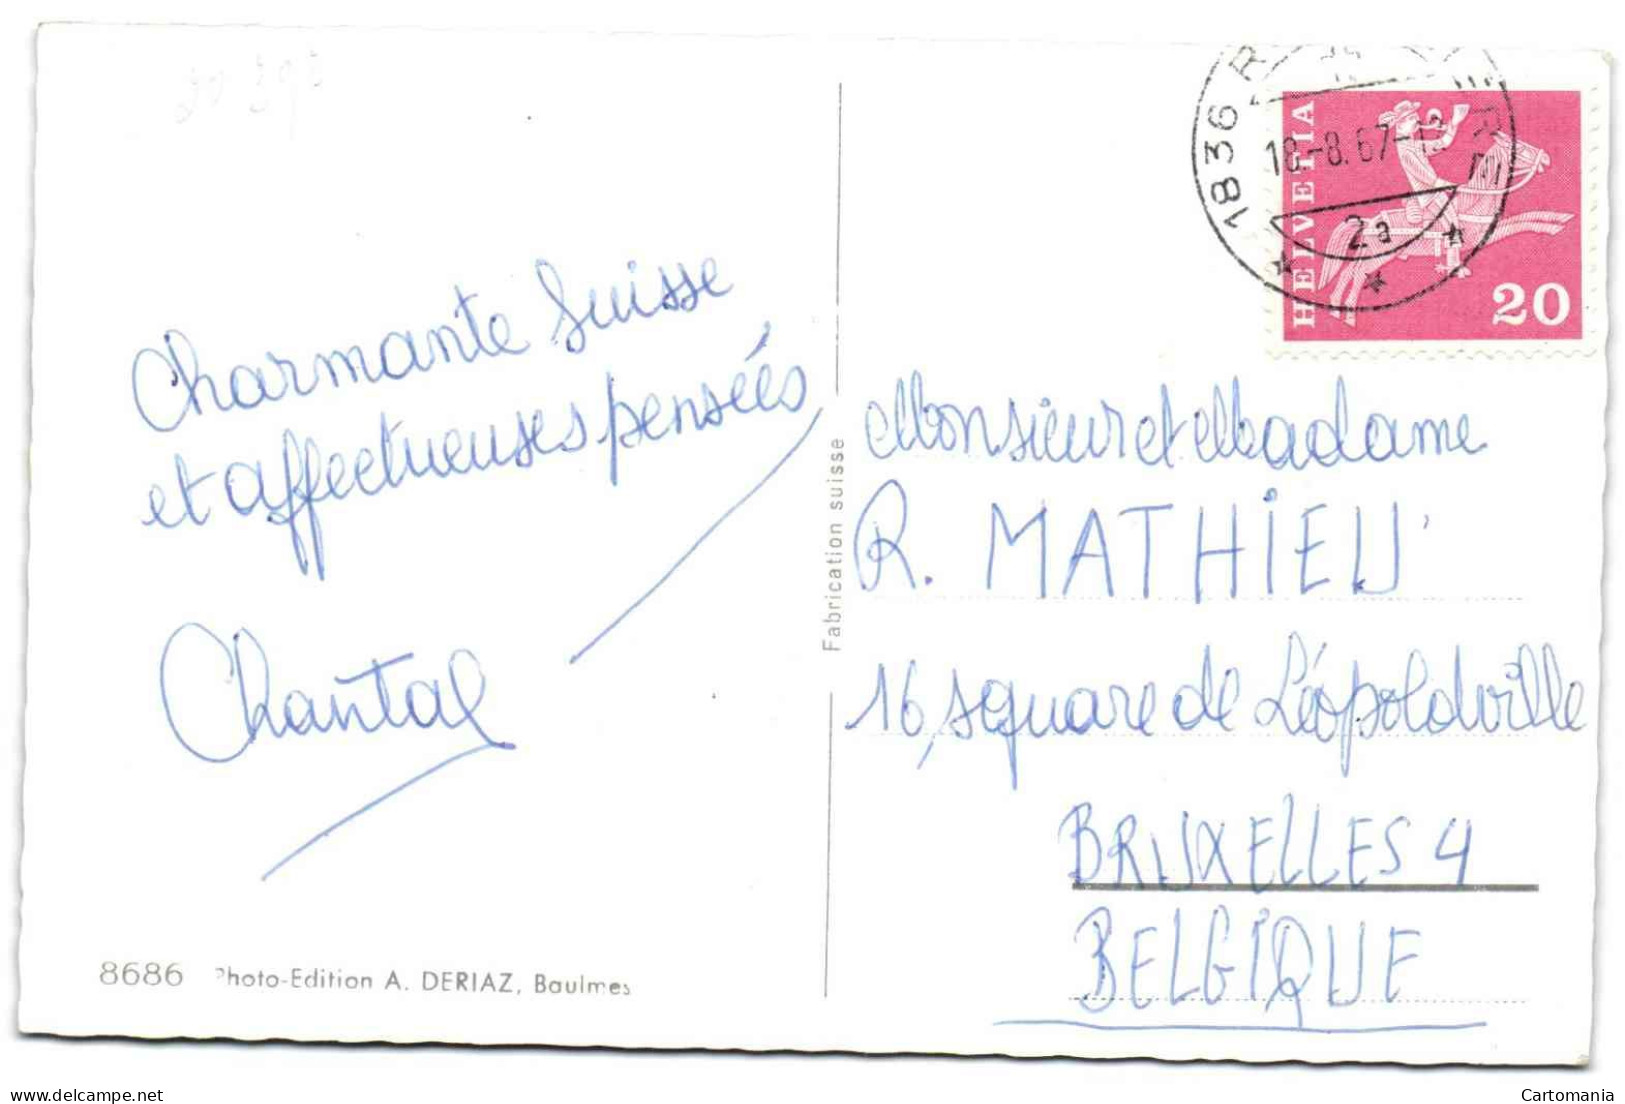 Charmante Suisse
et affectueuses pensées
Chantal
8686 Photo-Edition A. DERIAZ, Baulmes
Fabrication suisse
1836
18.-8.67-12
2a
HELVETIA
20
Monsieur et Madame
R. MATHIEU
16, square de Léopoldville
BRUXELLES 4
BELGIQUE
Cartomania